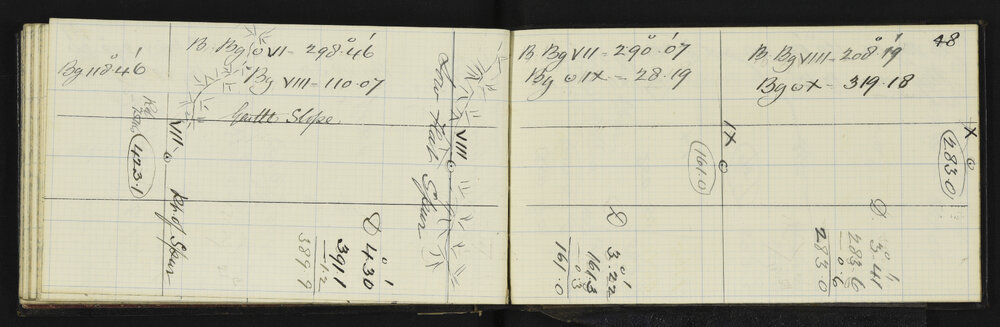 Bg 118°46'
B. Bg ʘ VI - 298°.46'
Bg VIII - 110.07
Gentle Slope.
VIII
423.1
Rt. of Spur
D 4°.30'
391.1
1.2
389.9
Low Flat Spur
VIII
48
B. Bg VII - 290°.07'
Bg ʘ IX - 28.19
IX
161.0
D 3°.22'
161.3
0.3
161.0
B. Bg VIII - 208°.19'
Bg ʘ X - 319.18
X
283.0
D 3°.41'
283.6
0.6
283.0